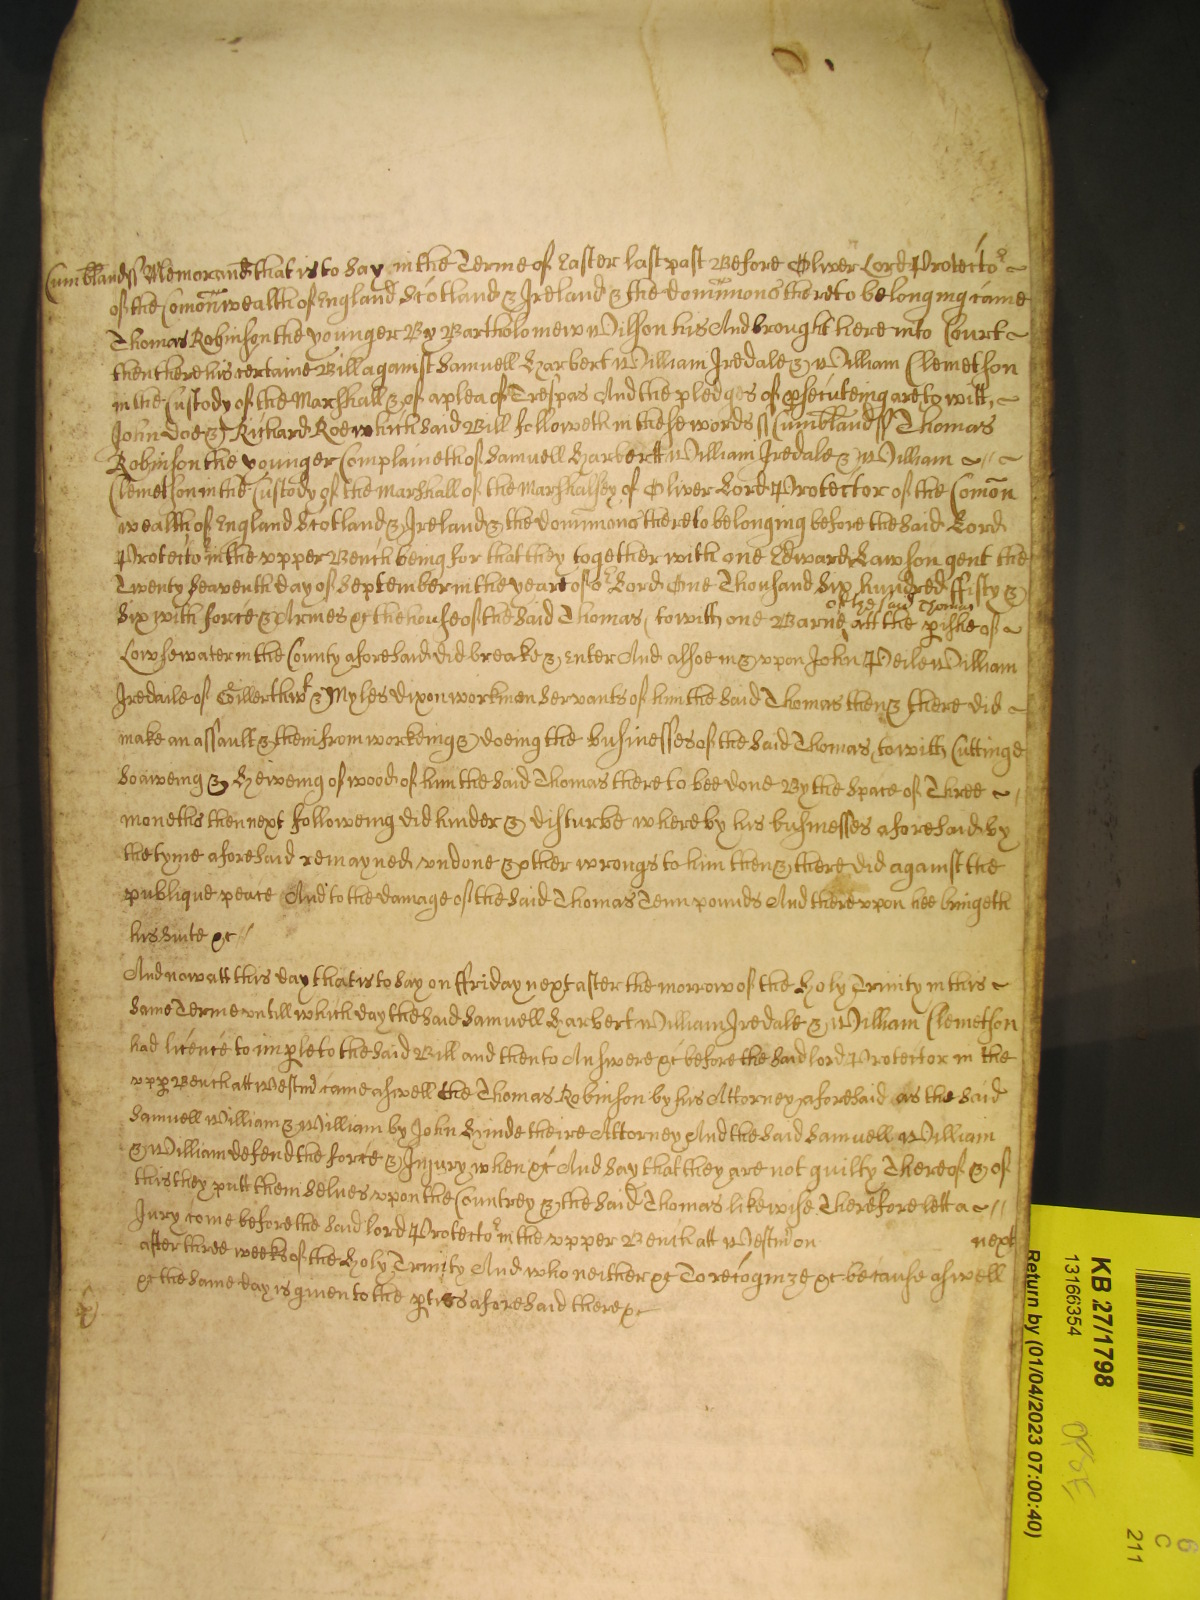 Cumbland ss Memorand that is to say in the Terme of Easter last past Before Oliver Lord Protector
of the Comonwealth of England Scotland & Ireland & the dominions thereto belonging came
Thomas Robinson the younger By Bartholomew Wilson his And brought here into Court
then there his certaine Bill against Samuell Harbert William Iredale & William Clemetson
in the Custody of the Marshall &c of a plea of Trespas And the pledges of psecuteing are to witt,
John Doe & Richard Roe which said Bill followeth in these words ss Cumbland ss Thomas
Robinson the younger Complaineth of Samuell Harbertt William Iredale & William
Clemetson in the Custody of the Marshall of the Marshalsey of Oliver Lord Protector of the Comon
wealth of England Scotland & Ireland & the dominions thereto belonging before the said Lord
Protector in the vpper Bench being for that they together with one Edward Lawson gent the
Twenty Seaventh day of September in the yeare of or Lord One Thousand Six hundred ffifty &
of the said Thomas
Six with force & Armes &c the house of the said Thomas, to witt one Barne att the pishe of
Lowsewater in the County aforesaid did breake & enter And alsoe in & vpon John Peile William
Iredaile of & Myles dixon workmen servants of him the said Thomas then & there did
make an assault & them from workeing & doeing the businesses of the said Thomas, to witt Cuttinge
Saweing & Heweing of wood of him the said Thomas there to bee done By the Space of Three
moneths then next followeing did hinder & disturbe whereby his businesses aforesaid by
the tyme aforesaid remayned vndone & other wrongs to him then & there did against the
publique peace And to the damage of the said Thomas Tenn pounds And therevpon hee bringeth
his suite &c
And now att this day that is to say on ffriday next after the morrow of the Holy Trinity in this
same Terme vntill which day the said Samuell Harbert William Iredale & William Clemetson
had licence to imple to the said Bill and then to Answere &c before the said lord Protector in the
vpp Bench att Westm came aswell the Thomas Robinson by his Attorney aforesaid as the said
Samuell William & William by John Hinde theire Attorney And the said Samuell William
& William defend the force & Injury when &c And say that they are not guilty Thereof & of
this they putt themselues vpon the Countrey & the said Thomas likewise Therefore lett a
Jury come before the said lord Protector in the vpper Bench att Westm on next
after three weeks of the Holy Trinity And who neither &c To recognize &c because aswell
&c the same day is given to the pties aforesaid there &c
KB 27/1798
13166354
Return by (01/04/2023 07:00:40)
6
C
211